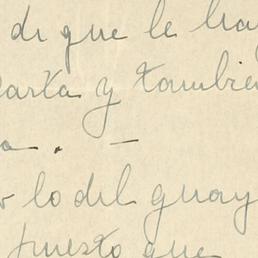 di que le hay
carta y tambie
a. —
lo del guay
puesto que